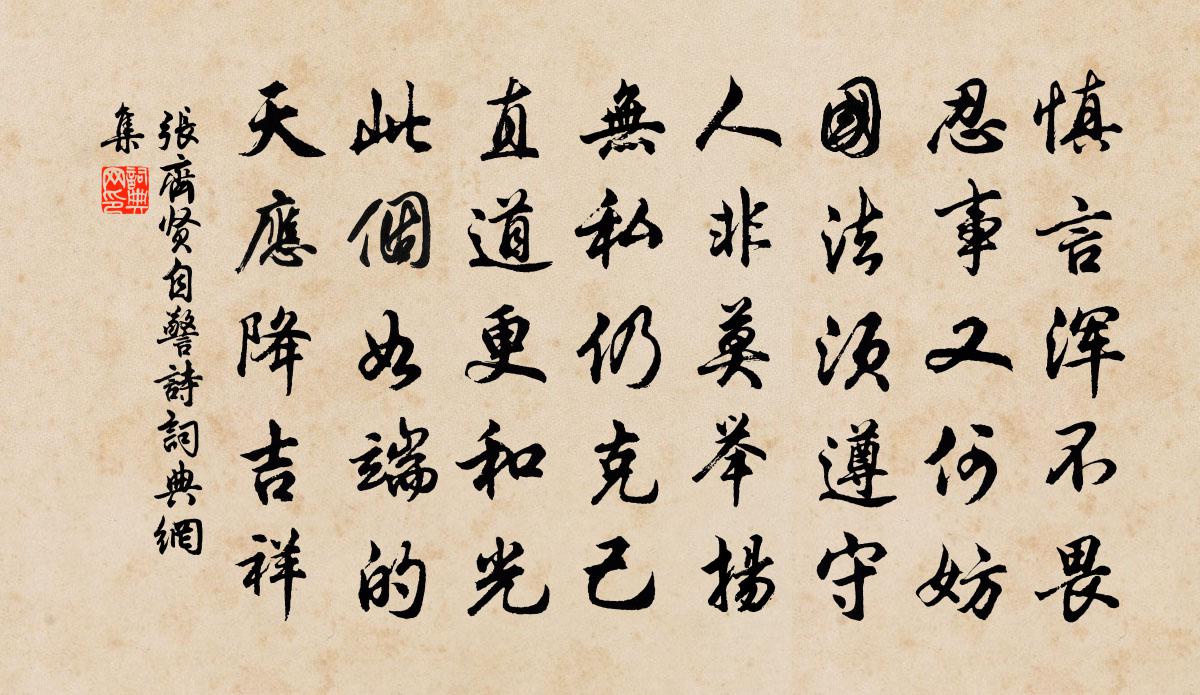 慎言浑不畏
忍事又何妨
國法须遵守
人非莫举揚
無私仍克己
直道更和光
此個如端的
天應降吉祥
張齊贤自警詩詞典網
集
詞典
网印